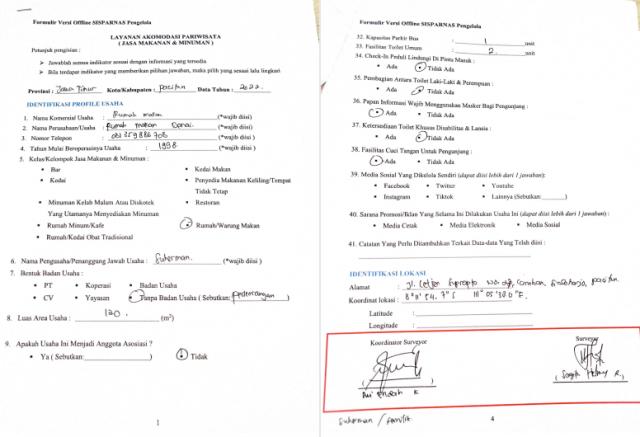 Formulir Versi Offline SISPARNAS Pengelola
LAYANAN AKOMODASI PARIWISATA
( JASA MAKANAN & MINUMAN )
Petunjuk pengisian :
➢ Jawablah semua indikator sesuai dengan informasi yang tersedia
➢ Bila terdapat indikator yang memberikan pilihan jawaban, maka pilih yang sesuai lalu lingkari
Provinsi : Jawa Timur Kota/Kabupaten : pacitan Data Tahun : 2022
IDENTIFIKASI PROFILE USAHA
1. Nama Komersial Usaha : Rumah makan (*wajib diisi)
2. Nama Perusahaan/Usaha : Rumah makan (*wajib diisi)
3. Nomor Telepon : (*wajib diisi)
4. Tahun Mulai Beroperasinya Usaha : 1998 (*wajib diisi)
5. Kelas/Kelompok Jasa Makanan & Minuman :
• Bar
• Kedai Makan
• Kedai
• Penyedia Makanan Keliling/Tempat
Tidak Tetap
• Minuman Kelab Malam Atau Diskotek
Yang Utamanya Menyediakan Minuman
• Restoran
• Rumah Minum/Kafe
• Rumah/Warung Makan
• Rumah/Kedai Obat Tradisional
6. Nama Pengusaha/Penanggung Jawab Usaha : Suherman. (*wajib diisi )
7. Bentuk Badan Usaha :
• PT • Koperasi • Badan Usaha
• CV • Yayasan • Tanpa Badan Usaha ( Sebutkan: perdagangan)
8. Luas Area Usaha : 120. (m²)
9. Apakah Usaha Ini Menjadi Anggota Asosiasi ?
• Ya ( Sebutkan: ) • Tidak
1
Formulir Versi Offline SISPARNAS Pengelola
32. Kapasitas Parkir Bus : 1 unit
33. Fasilitas Toilet Umum : 2 unit
34. Check-In Peduli Lindungi Di Pintu Masuk :
• Ada • Tidak Ada
35. Pembagian Antara Toilet Laki-Laki & Perempuan :
• Ada • Tidak Ada
36. Papan Informasi Wajib Menggunakan Masker Bagi Pengunjung :
• Ada • Tidak Ada
37. Ketersediaan Toilet Khusus Disabilitas & Lansia :
• Ada • Tidak Ada
38. Fasilitas Cuci Tangan Untuk Pengunjung :
• Ada • Tidak Ada
39. Media Sosial Yang Dikelola Sendiri (dapat diisi lebih dari 1 jawaban):
• Facebook • Twitter • Youtube
• Instagram • Tiktok • Lainnya (Sebutkan: )
40. Sarana Promosi/Iklan Yang Selama Ini Dilakukan Usaha Ini (dapat diisi lebih dari 1 jawaban) :
• Media Cetak • Media Elektronik • Media Sosial
41. Catatan Yang Perlu Ditambahkan Terkait Data-data Yang Telah diisi :
IDENTIFIKASI LOKASI
Alamat : Jl. Letjen Suprapto pacitan.
Koordinat lokasi :
Latitude :
Longitude :
Koordinator Surveyor
Surveyor
Suherman /
4